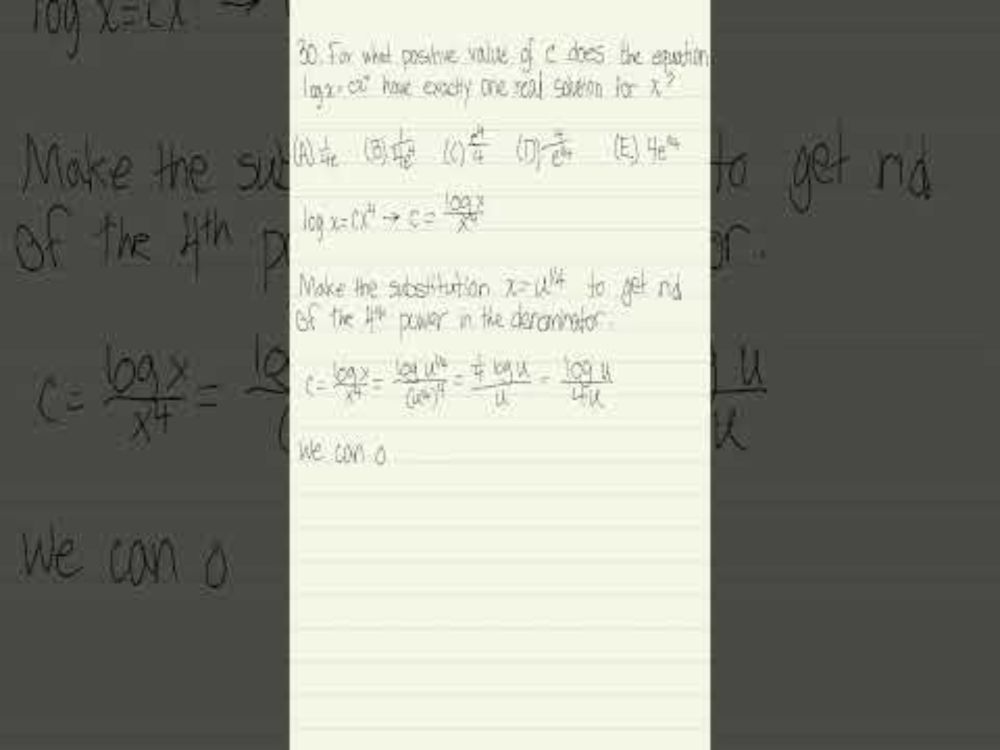 30. For what positive value of c does the equation
log x = cx⁴ have exactly one real solution for x?
(A) 1/4e (B) 1/4e⁴ (C) e⁴/4 (D) 4/e^1/4 (E) 4e^1/4
log x = cx⁴ → c = log x/x⁴
Make the substitution x = u^1/4 to get rid
of the 4th power in the denominator.
c = log x/x⁴ = log u^1/4/(u^1/4)⁴ = 1/4 log u/u = log u/4u
We can o